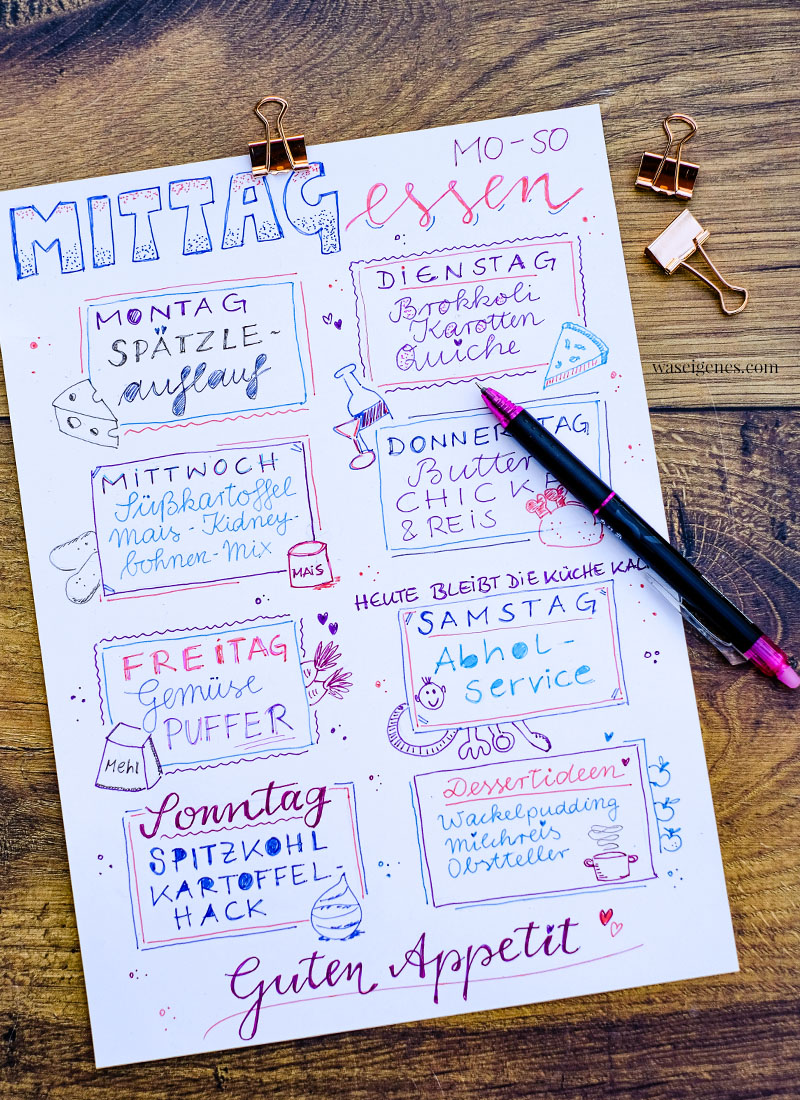 MO-SO
MITTAGessen
MONTAG
SPÄTZLE-
auflauf
DIENSTAG
Brokkoli
Karotten
Quiche
waseigenes.com
MITTWOCH
Süßkartoffel
Mais-Kidney-
bohnen-Mix
MAiS
DONNERSTAG
Butter
CHICKE
& REiS
HEUTE BLEIBT DiE KÜCHE KAL
FREiTAG
Gemüse
PUFFER
Mehl
SAMSTAG
Abhol-
service
Sonntag
SPITZKOHL
KARTOFFEL-
HACK
Dessertideen
Wackelpudding
Milchreis
Obstteller
Guten Appetit